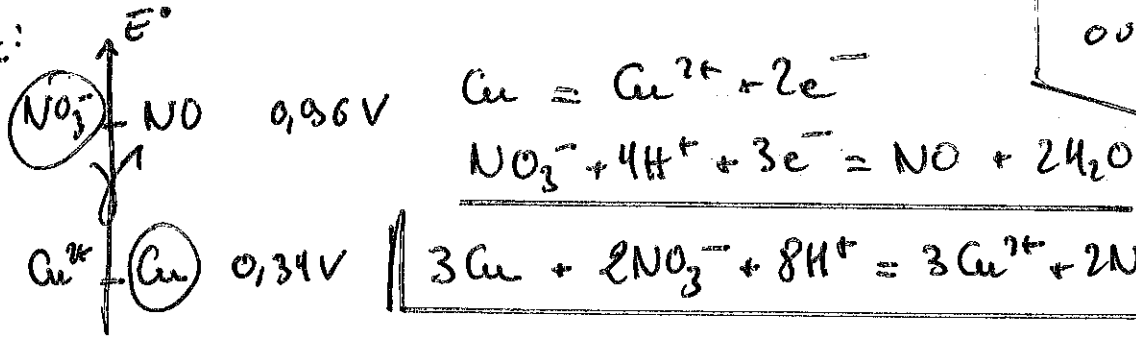 E°
NO₃⁻ NO 0,96 V
Cu²⁺ Cu 0,34 V
Cu = Cu²⁺ + 2e⁻
NO₃⁻ + 4H⁺ + 3e⁻ = NO + 2H₂O
3Cu + 2NO₃⁻ + 8H⁺ = 3Cu²⁺ + 2N